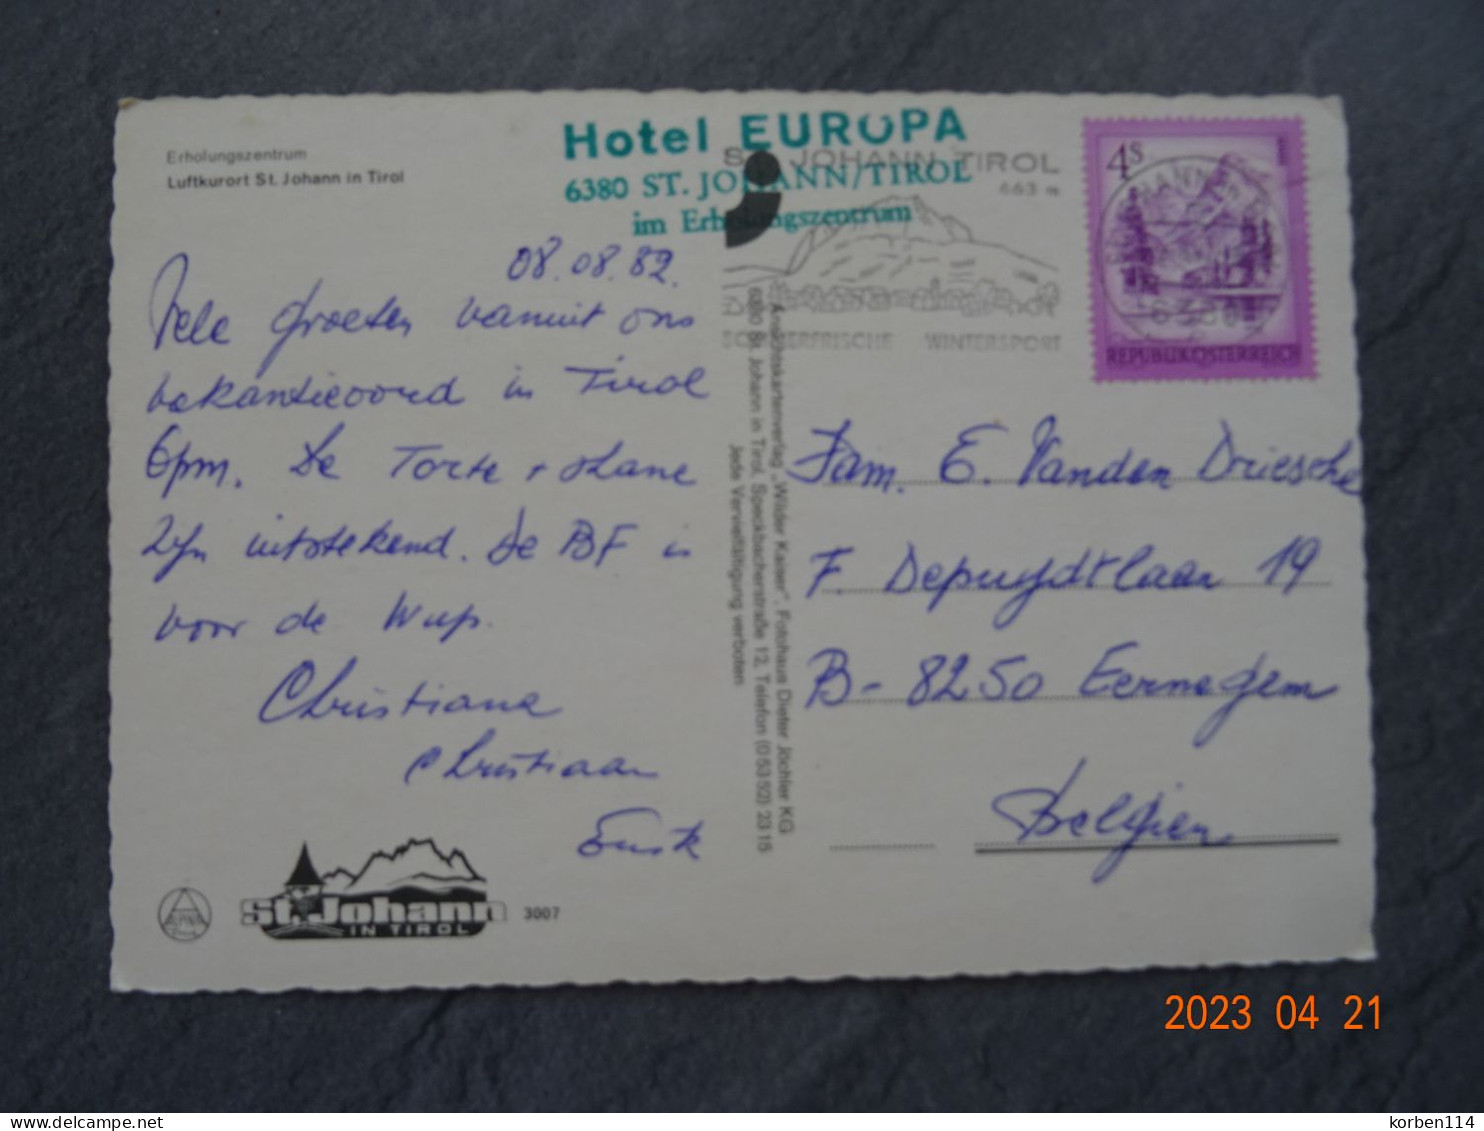 Erholungszentrum
Luftkurort St. Johann in Tirol
Hotel EUROPA
6380 ST. JOHANN/TIROL
im Erholungszentrum
JOHANN TIROL
663 m
WINTERSPORT
4S
REPUBLIK ÖSTERREICH
08.08.82.
Vele groeten vanuit ons
vakantieoord in Tirol
6pm. De Torte + 
zijn uitstekend. De BF is
voor de Wup.
Christiane
Christiaan
Ansichtskartenverlag „Wilder Kaiser“, Fotohaus Dieter Jöchler KG
6380 St. Johann in Tirol, Speckbacherstraße 12, Telefon (05352) 2315
Jede Vervielfältigung verboten
Fam. E. Vanden Driesche
F. Depuydtlaan 19
B- 8250 Eernegem
Belgien
St. Johann
IN TIROL
3007
2023 04 21
delcampe.net
korben114